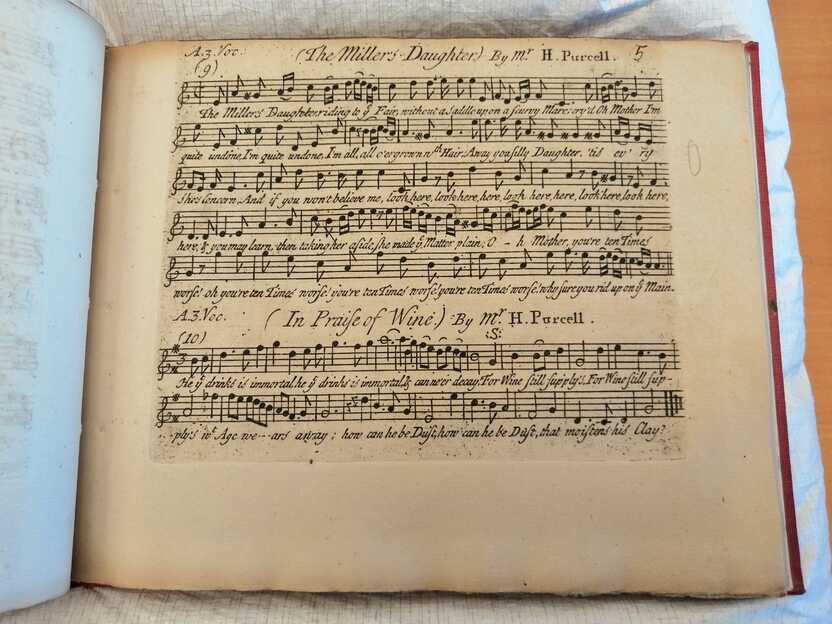 A.3.Voc. (The Millers Daughter) By Mr. H. Purcell. 5
(9)
The Millers Daughter riding to ye Fair, without a Saddle upon a scurvy Mare; cry'd Oh Mother I'm
quite undone, I'm quite undone, I'm all, all o'er grown wth Hair: Away you silly Daughter, 'tis ev' ry
She's Concern, And if you won't believe me, look here, look here, here, look here, here, look here, look here,
here, & you may learn, then taking her aside, she made ye Matter plain; O - h Mother, you're ten Times
worse! oh you're ten Times worse! you're ten Times worse! you're ten Times worse! why sure you rid upon ye Main.
A.3.Voc. (In Praise of Wine.) By Mr. H. Purcell.
(10) :S:
He yt drinks is immortal, he yt drinks is immortal, & can ne'er decay, For Wine still supply's, For Wine still sup-
-ply's wt Age we - - ars away; how can he be Dust, how can he be Dust, that moistens his Clay?